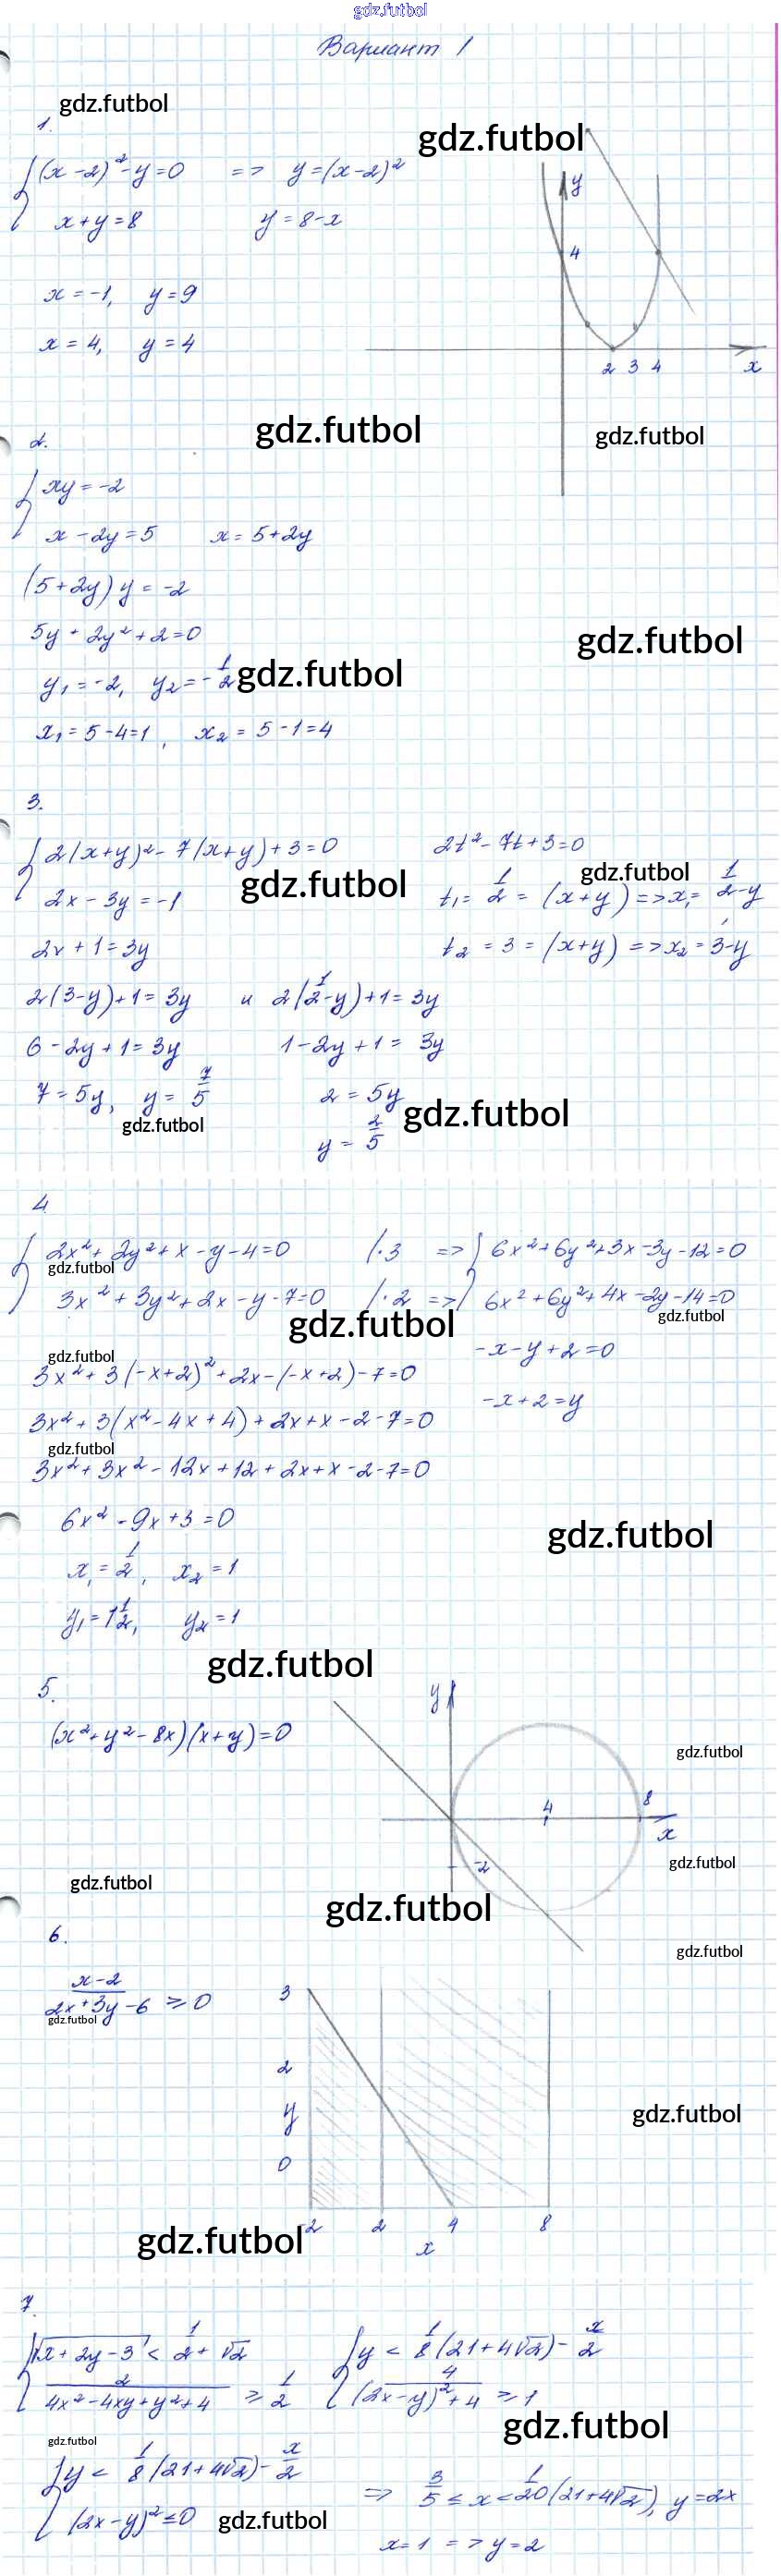 gdz.futbol
Вариант 1
gdz.futbol
1.
gdz.futbol
(x-2)²-y=0 => y=(x-2)²
x+y=8 y=8-x
y
4
x=-1, y=9
x=4, y=4
2 3 4 x
gdz.futbol
gdz.futbol
2.
xy=-2
x-2y=5 x=5+2y
(5+2y)y=-2
5y+2y²+2=0
gdz.futbol
y₁=-2, y₂=-1/2
gdz.futbol
x₁=5-4=1, x₂=5-1=4
3.
2(x+y)²-7(x+y)+3=0 2t²-7t+3=0
gdz.futbol
gdz.futbol
2x-3y=-1 t₁=1/2=(x+y)=>x₁=1/2-y
2x+1=3y t₂=3=(x+y)=>x₂=3-y
2(3-y)+1=3y и 2(1/2-y)+1=3y
6-2y+1=3y 1-2y+1=3y
7=5y, y=7/5 2=5y
gdz.futbol
gdz.futbol
y=2/5
4
2x²+2y²+x-y-4=0 |·3 => 6x²+6y²+3x-3y-12=0
gdz.futbol
3x²+3y²+2x-y-7=0 |·2 => 6x²+6y²+4x-2y-14=0
gdz.futbol
gdz.futbol
-x-y+2=0
gdz.futbol
3x²+3(-x+2)²+2x-(-x+2)-7=0
-x+2=y
3x²+3(x²-4x+4)+2x+x-2-7=0
gdz.futbol
3x²+3x²-12x+12+2x+x-2-7=0
6x²-9x+3=0
gdz.futbol
x₁=1/2, x₂=1
y₁=1 1/2, y₂=1
gdz.futbol
5.
y
(x²+y²-8x)(x+y)=0
gdz.futbol
4 8
x
-2
gdz.futbol
gdz.futbol
gdz.futbol
6.
gdz.futbol
(x-2)/(2x+3y-6) ≥ 0
gdz.futbol
3
2
y
0
gdz.futbol
-2 2 4 8
gdz.futbol
x
7.
√(x+2y-3) < 1/2+√2 y < 1/8(21+4√2)-x/2
2/(4x²-4xy+y²+4) ≥ 1/2 4/((2x-y)²+4) ≥ 1
gdz.futbol
gdz.futbol
y < 1/8(21+4√2)-x/2
(2x-y)²≤0 => 3/5 ≤ x < 1/20(21+4√2), y=2x
gdz.futbol
x=1 => y=2